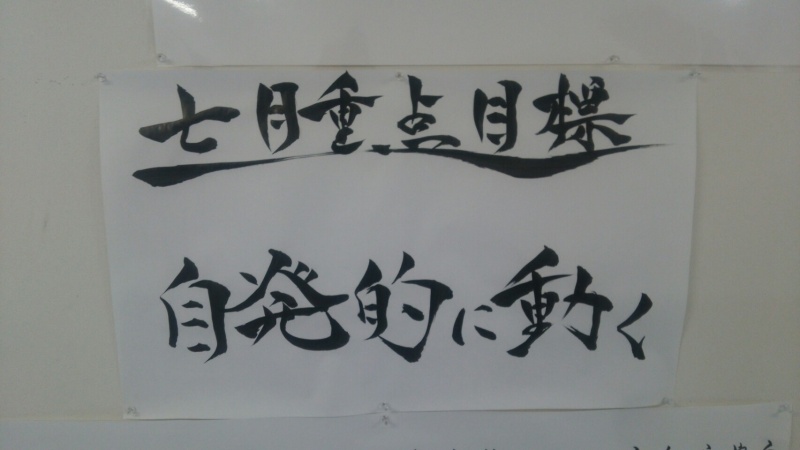 七月重点目標
自発的に動く